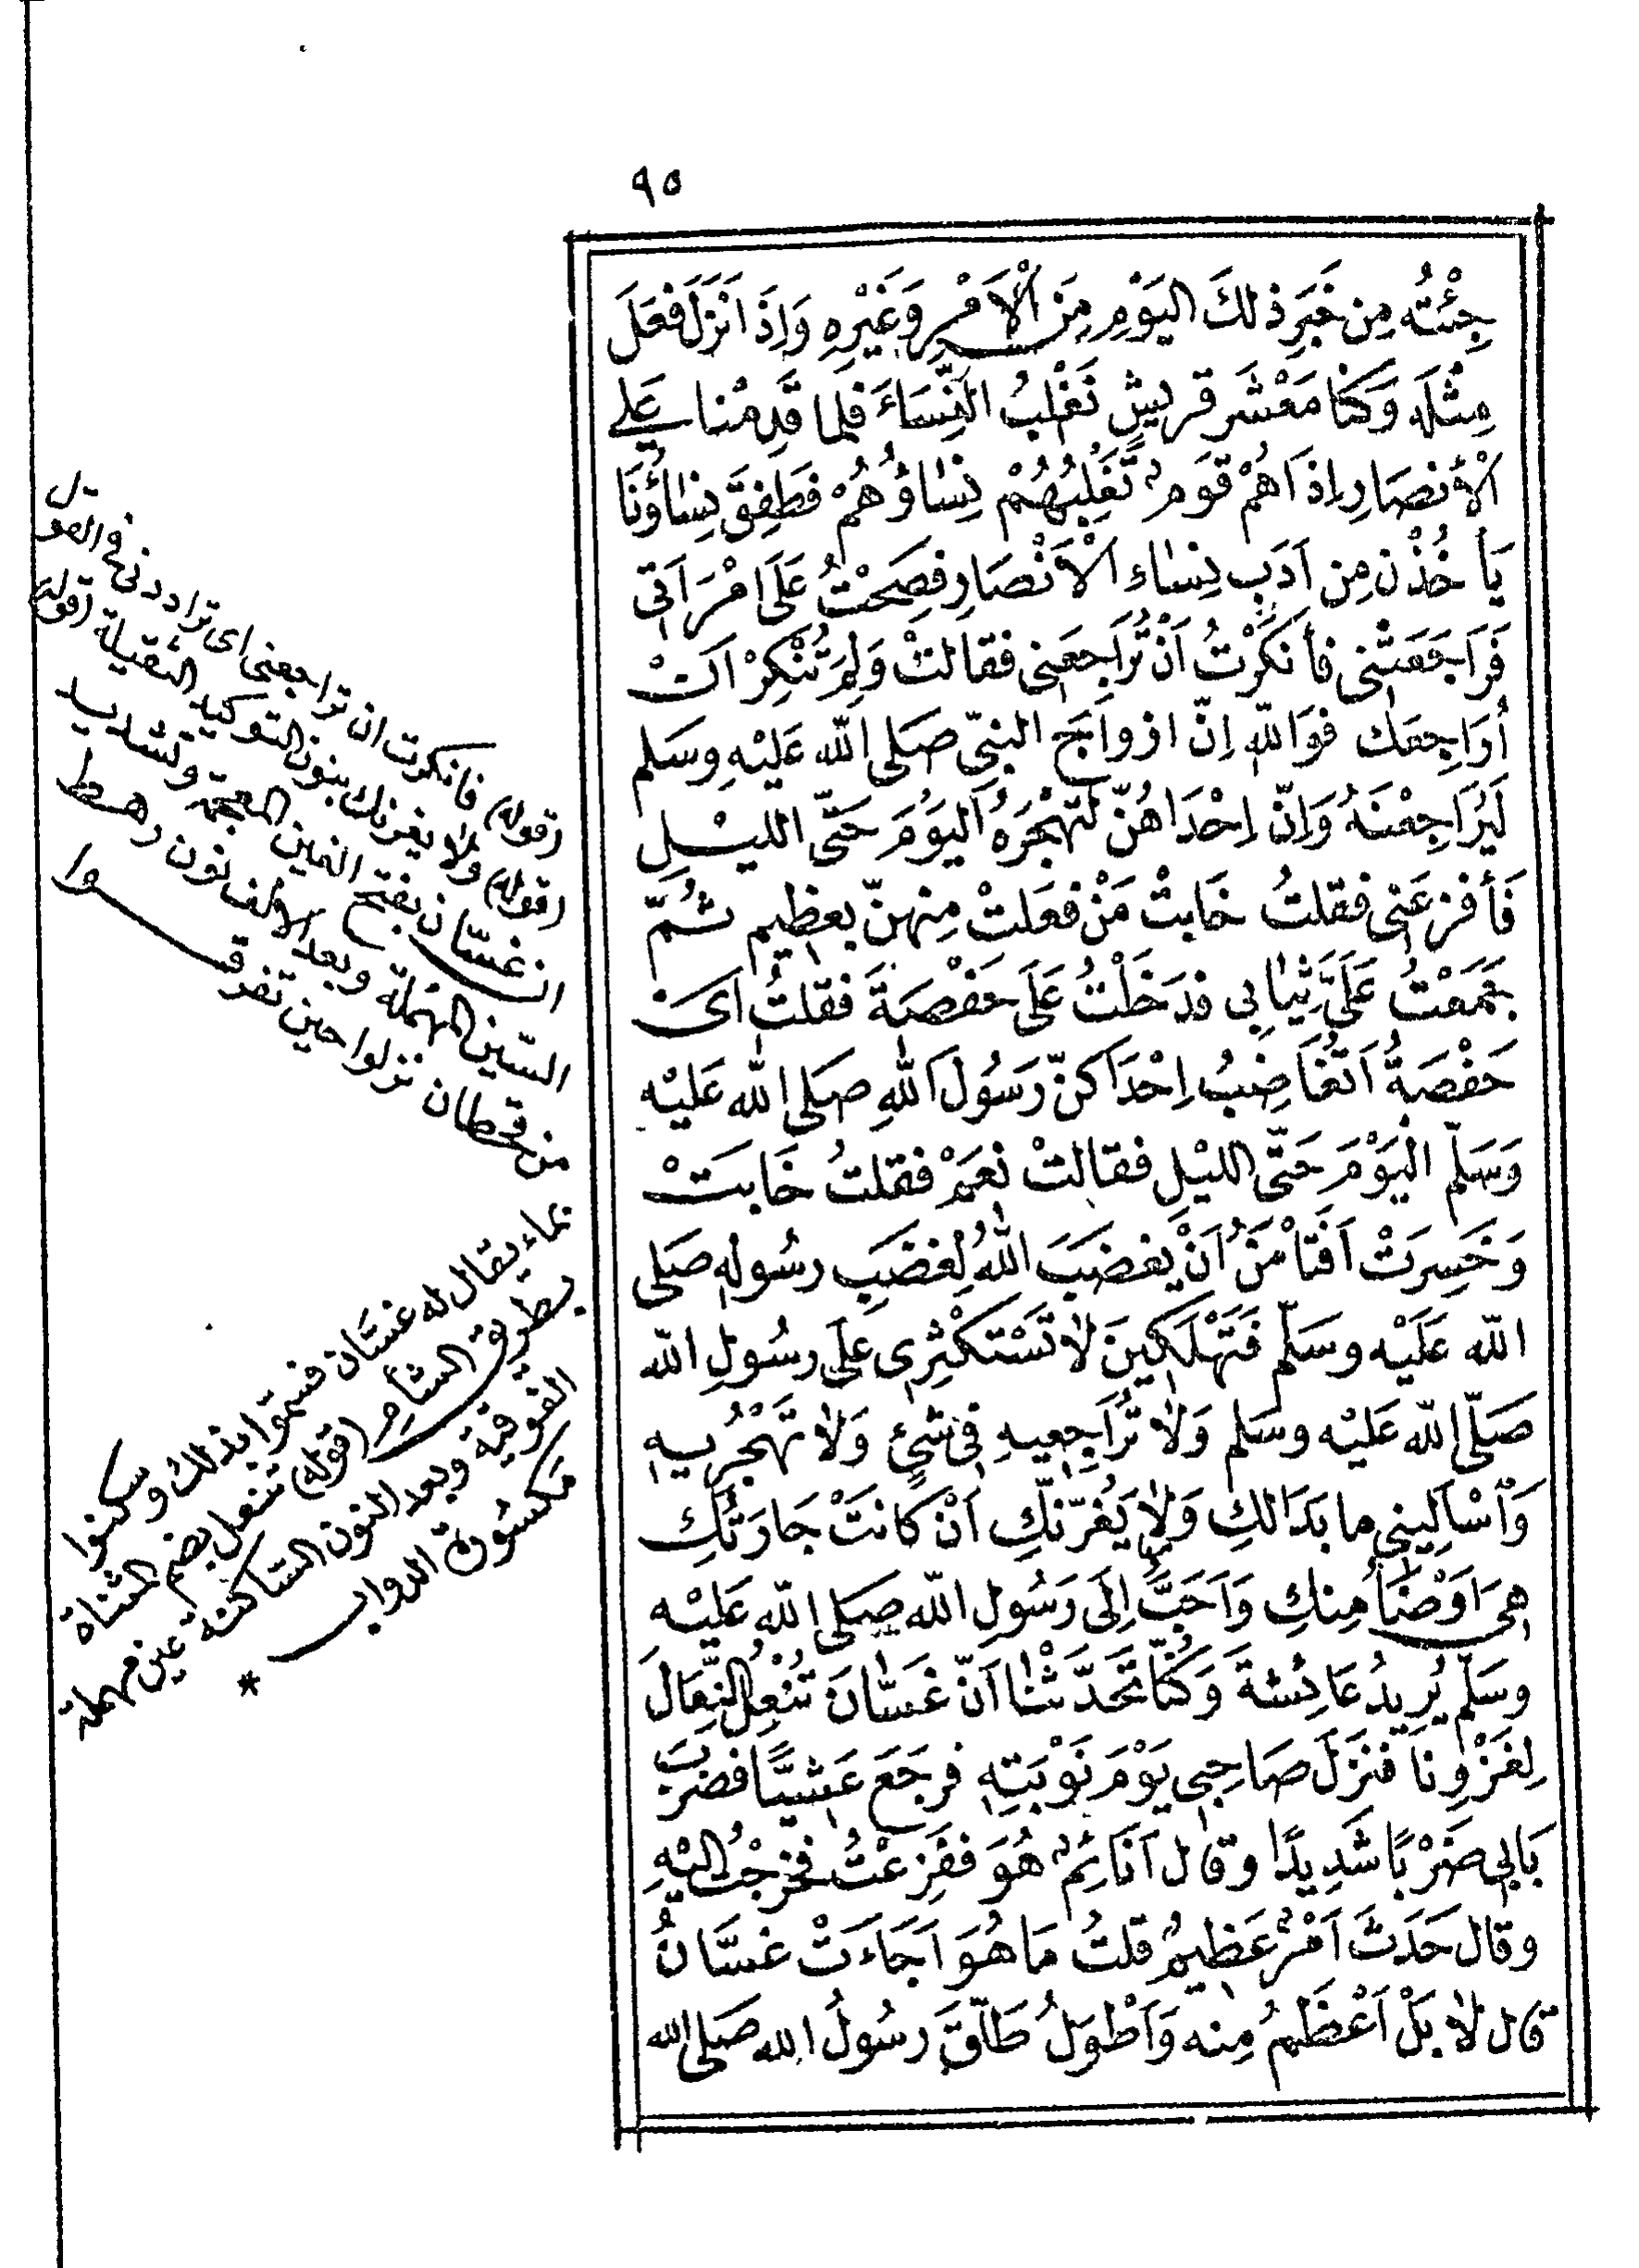 ٩٥
جِئْتُه مِن خَبَرِ ذلكَ اليَوْمِ مِنَ الْاَمْرِ وَغَيْرِهِ وَاِذَ اَنْزَلَ فَعَلَ
مِثْلَهُ وَكُنَّا مَعْشَرَ قريشٍ نَغْلِبُ النِّسَاءَ فلما قَدِمْنا عَلَى
الْأنصَارِ اِذَا هُمْ قَومٌ تَغْلِبُهُمْ نِسَاؤُهُمْ فَطَفِقَ نِسَاؤُنَا
يَأخُذْنَ مِن اَدَبِ نِسَاءِ الْاَنْصَارِ فَصِحْتُ عَلَى امْرَاَتِى
فَرَاجَعَتْنى فأنكَرْتُ اَنْ تُرَاجِعَنى فقالتْ وَلِمَ تُنْكِرُ اَنْ
اُرَاجِعَكَ فَوَاللّٰهِ اِنَّ ازواجَ النبىّ صَلى اللّٰه عَلَيْهِ وسَلم
لَيُرَاجِعْنَهُ وَاِنَّ اِحْدَاهُنَّ لَتَهْجُرُهُ اليَوْمَ حَتَّى الليْلِ
فَأفزعَنى فقلتُ خَابتْ مَنْ فعَلتْ مِنهنّ بعَظِيمٍ ثُمَّ
جَمَعْتُ عَلَىَّ ثِيابِى فدَخَلْتُ عَلَى حَفْصَةَ فقلتُ اَىْ
حَفْصَةُ اَتُغَاضِبُ اِحْدَاكنّ رَسُولَ اللّٰهِ صَلى اللّٰه عَلَيْه
وَسَلّم اليَوْمَ حَتَّى الليْلِ فقالتْ نعَمْ فقلتُ خَابَتْ
وَخَسِرَتْ اَفَتَأمَنُ اَنْ يغضَبَ اللّٰهُ لِغضَبِ رسُولِهِ صَلى
اللّٰه عَلَيْه وسَلّم فَتَهْلَكِينَ لَا تَسْتكْثِرِى عَلَى رسُولِ اللّٰه
صَلّى اللّٰه عَلَيْه وسَلم وَلَا تُرَاجِعِيهِ فى شئٍ وَلَا تَهْجُرِيهِ
وَاسْاَلِينى ما بَدَا لكِ وَلَا يَغُرّنّكِ اَنْ كَانَتْ جَارَتُكِ
هِىَ اَوْضَأُ مِنكِ وَاَحَبَّ اِلَى رَسُولِ اللّٰه صَلى اللّٰه عَلَيْه
وسَلّم يُرِيدُ عَائِشةَ وَكُنَّا تَحَدَّثْنَا اَنّ غَسَّانَ تُنْعِلُ النِّعَالَ
لِغَزْوِنَا فَنزَلَ صَاحِبى يَوْمَ نَوْبَتِهِ فرَجَعَ عَشِيًّا فضَرَبَ
بَابِى ضَرْبًا شَدِيدًا وقال اَنَائِمٌ هُوَ ففَزِعْتُ فخَرَجْتُ اليْهِ
وقال حَدَثَ اَمْرٌ عَظِيمٌ قلتُ مَا هُوَ اَجَاءَتْ غسَّانُ
قال لَا بَلْ اَعْظَمُ مِنه وَاَطْوَلُ طَلّقَ رسُولُ اللّٰه صَلى اللّٰه
(قوله) فانكرت ان تراجعنى اى تراددنى فى القول
(قوله) ولا يغرنك بنون التوكيد الثقيلة (قوله)
ان غسّان بفتح الغين المعجمة وتشديد
السّين المهملة وبعد الالف نون رهط
من قحطان نزلوا حين تفرقوا
بماء يقال له غسّان فسمّوا بذلك وسكنوا
بطريق الشأم (قوله) تنعل بضم المثناة
الفوقية وبعد النون الساكنة عين مهملة
مكسورة الدواب *